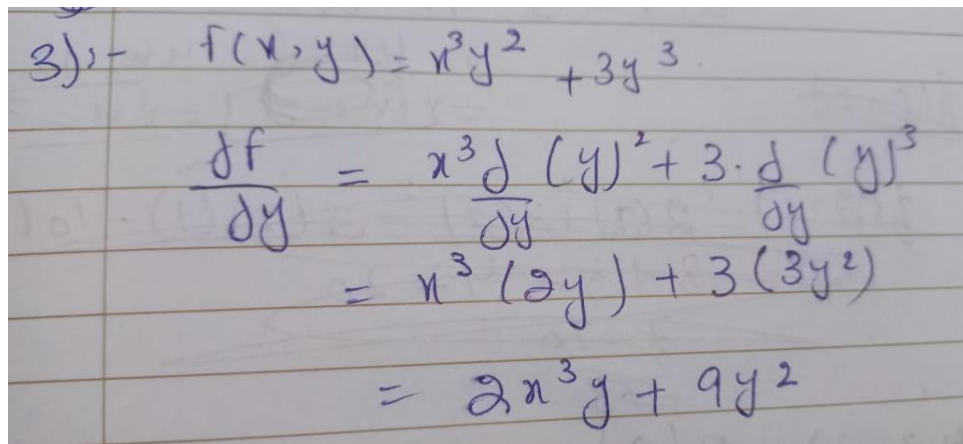 3) :- f(x, y) = x³y² + 3y³
∂f/∂y = x³ ∂/∂y (y)² + 3 · ∂/∂y (y)³
= x³ (2y) + 3 (3y²)
= 2x³y + 9y²